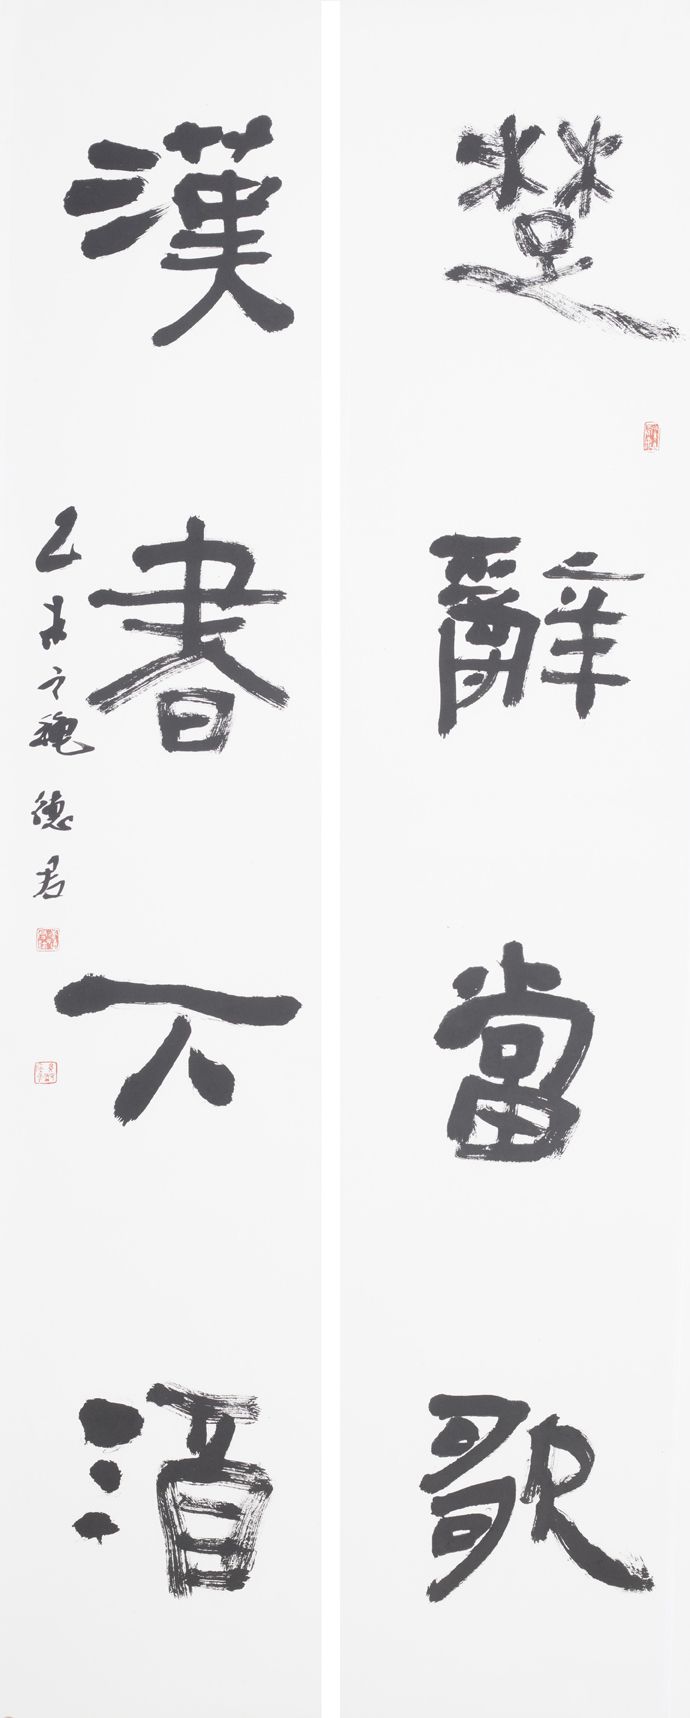 楚辭當歌
漢書下酒
乙未 魏德君